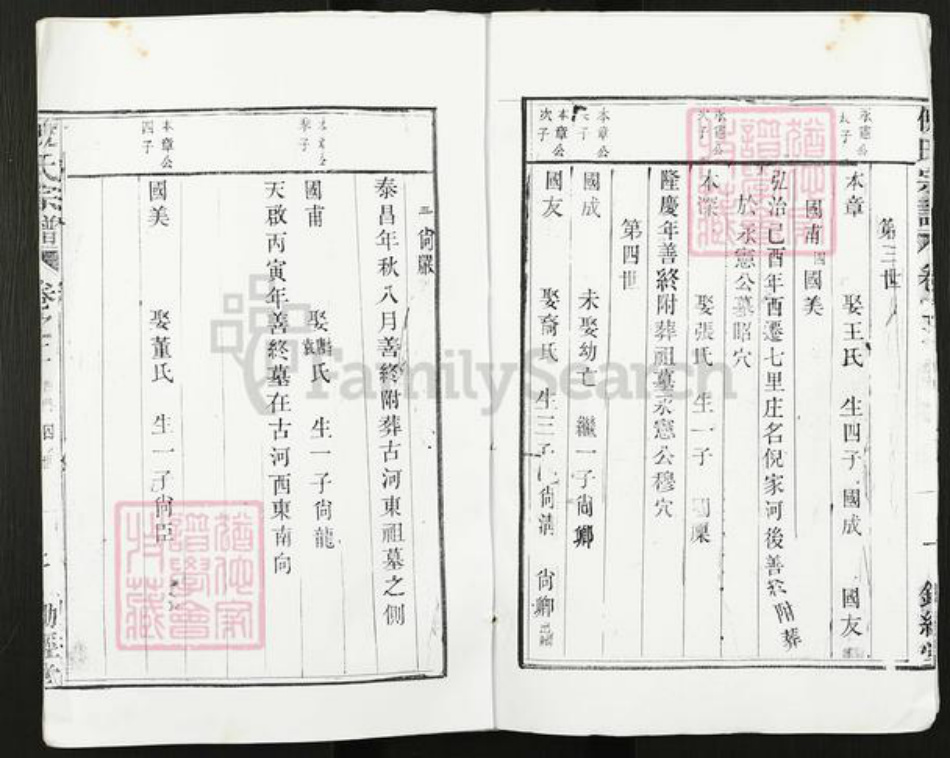 第三世
永憲公
長子
本章 娶王氏 生四子 國成 國友
國甫 四 國美
弘治己酉年酉遷七里庄名倪家河後善終附葬
於永憲公墓昭穴
永憲公
次子
本深 娶張氏 生一子 國稟
隆慶年善終附葬祖墓永憲公穆穴
第四世
本章公
長子
國成 未娶幼亡 繼一子尙卿
本章公
次子
國友 娶裔氏 生三子 尙清 尙卿出繼
三尙嚴
泰昌年秋八月善終附葬古河東祖墓之側
本章公
三子
國甫 娶袁氏 生一子尙龍
天啟丙寅年善終墓在古河西東南向
本章公
四子
國美 娶董氏 生一子尙臣
倪氏宗譜 卷之
猶他家譜學會收藏
FamilySearch